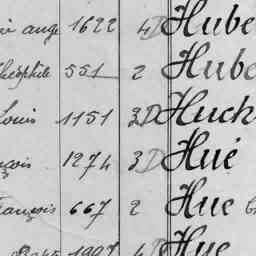 ange 1622 4D Hube
Théophile 551 2 Hube
Louis 1151 3D Huch
çois 1274 3D Hué
ançois 667 2 Hue
1907 4 Hue